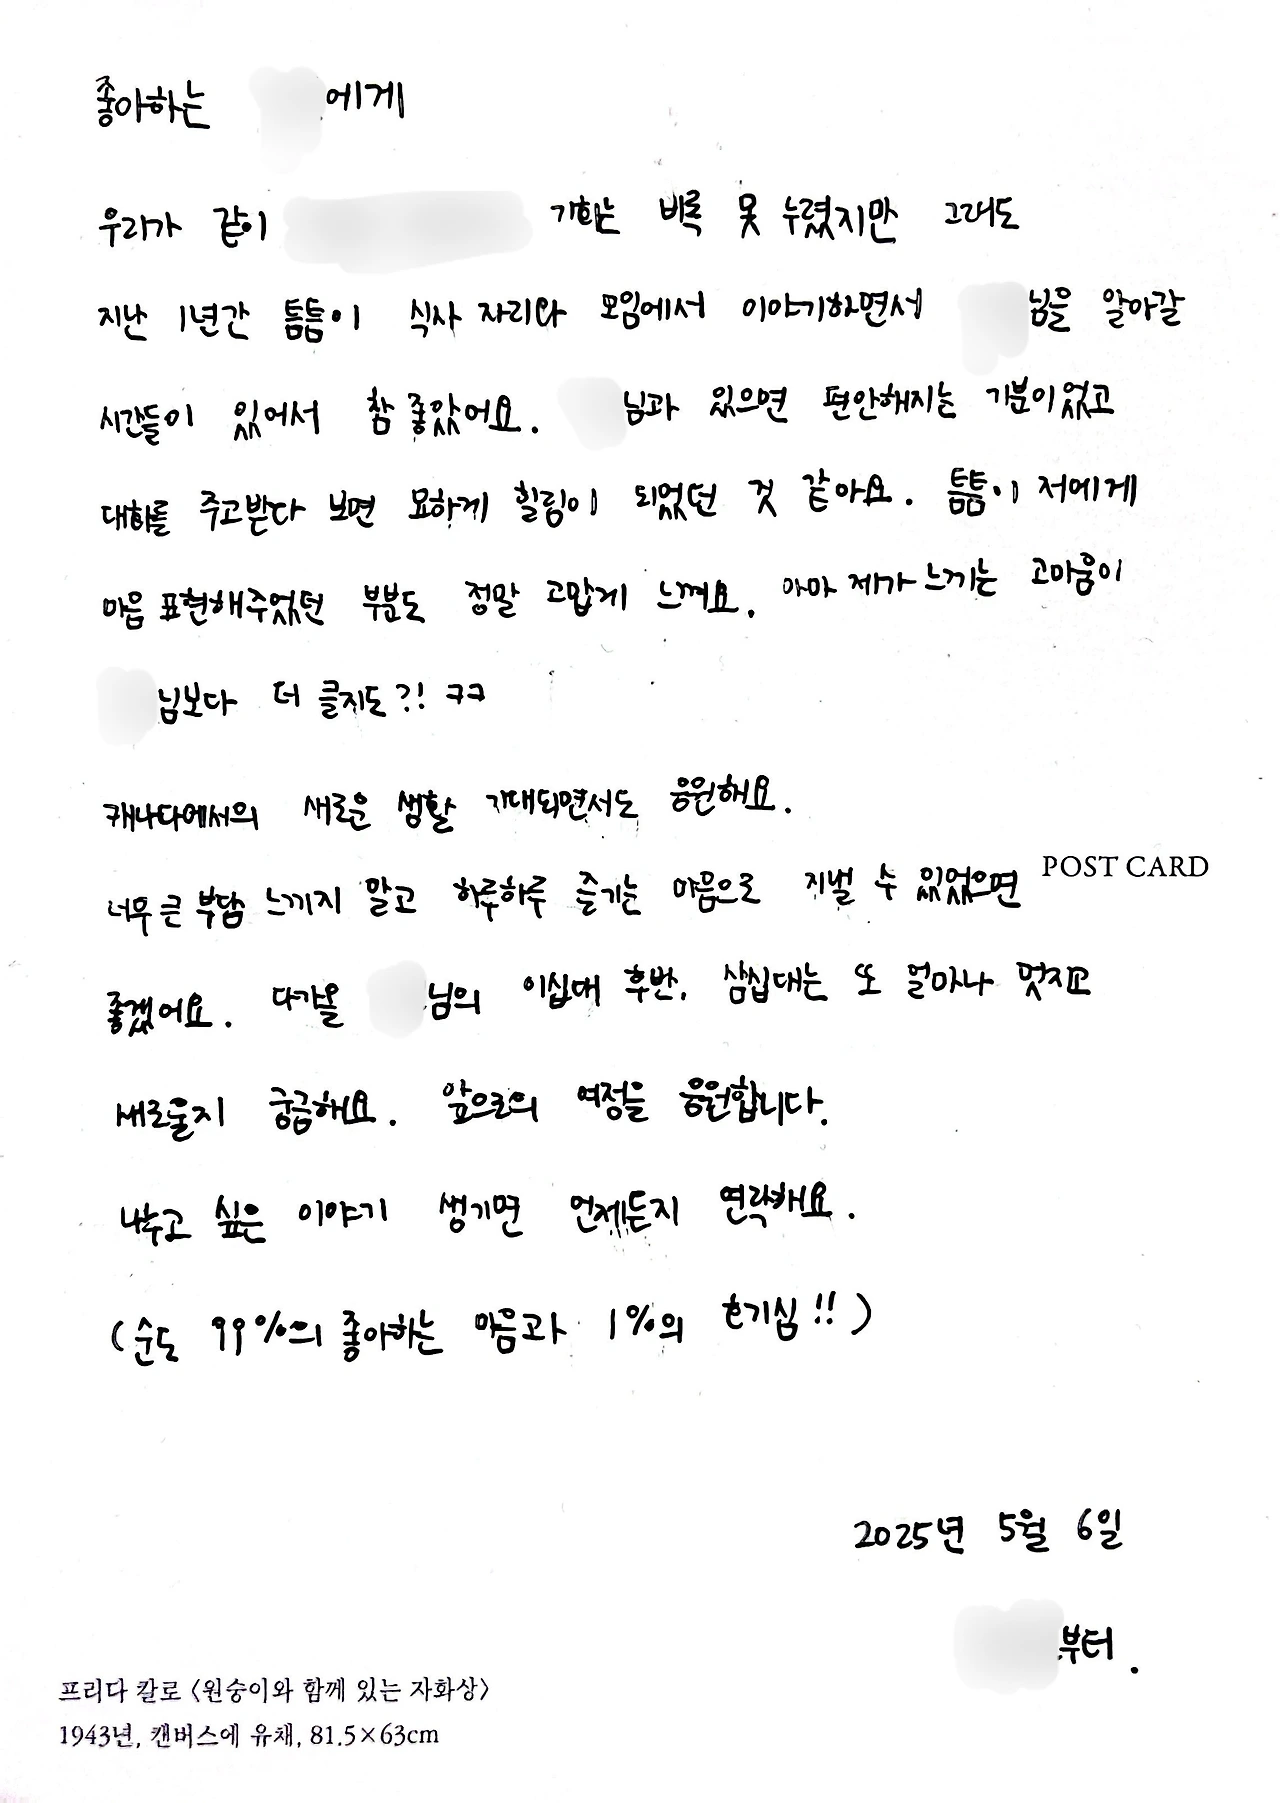 좋아하는 에게
우리가 같이 기회는 비록 못 누렸지만 그래도
지난 1년간 틈틈이 식사 자리와 모임에서 이야기하면서 님을 알아갈
시간들이 있어서 참 좋았어요. 님과 있으면 편안해지는 기분이었고
대화를 주고받다 보면 묘하게 힐링이 되었던 것 같아요. 틈틈이 저에게
마음 표현해주었던 부분도 정말 고맙게 느껴요. 아마 제가 느끼는 고마움이
님보다 더 클지도?! ㅋㅋ
캐나다에서의 새로운 생활 기대되면서도 응원해요.
너무 큰 부담 느끼지 말고 하루하루 즐기는 마음으로 지낼 수 있었으면
POST CARD
좋겠어요. 다가올 님의 이십대 후반, 삼십대는 또 얼마나 멋지고
새로울지 궁금해요. 앞으로의 여정을 응원합니다.
나누고 싶은 이야기 생기면 언제든지 연락해요.
(순도 99%의 좋아하는 마음과 1%의 호기심!!)
2025년 5월 6일
부터.
프리다 칼로 〈원숭이와 함께 있는 자화상〉
1943년, 캔버스에 유채, 81.5×63cm